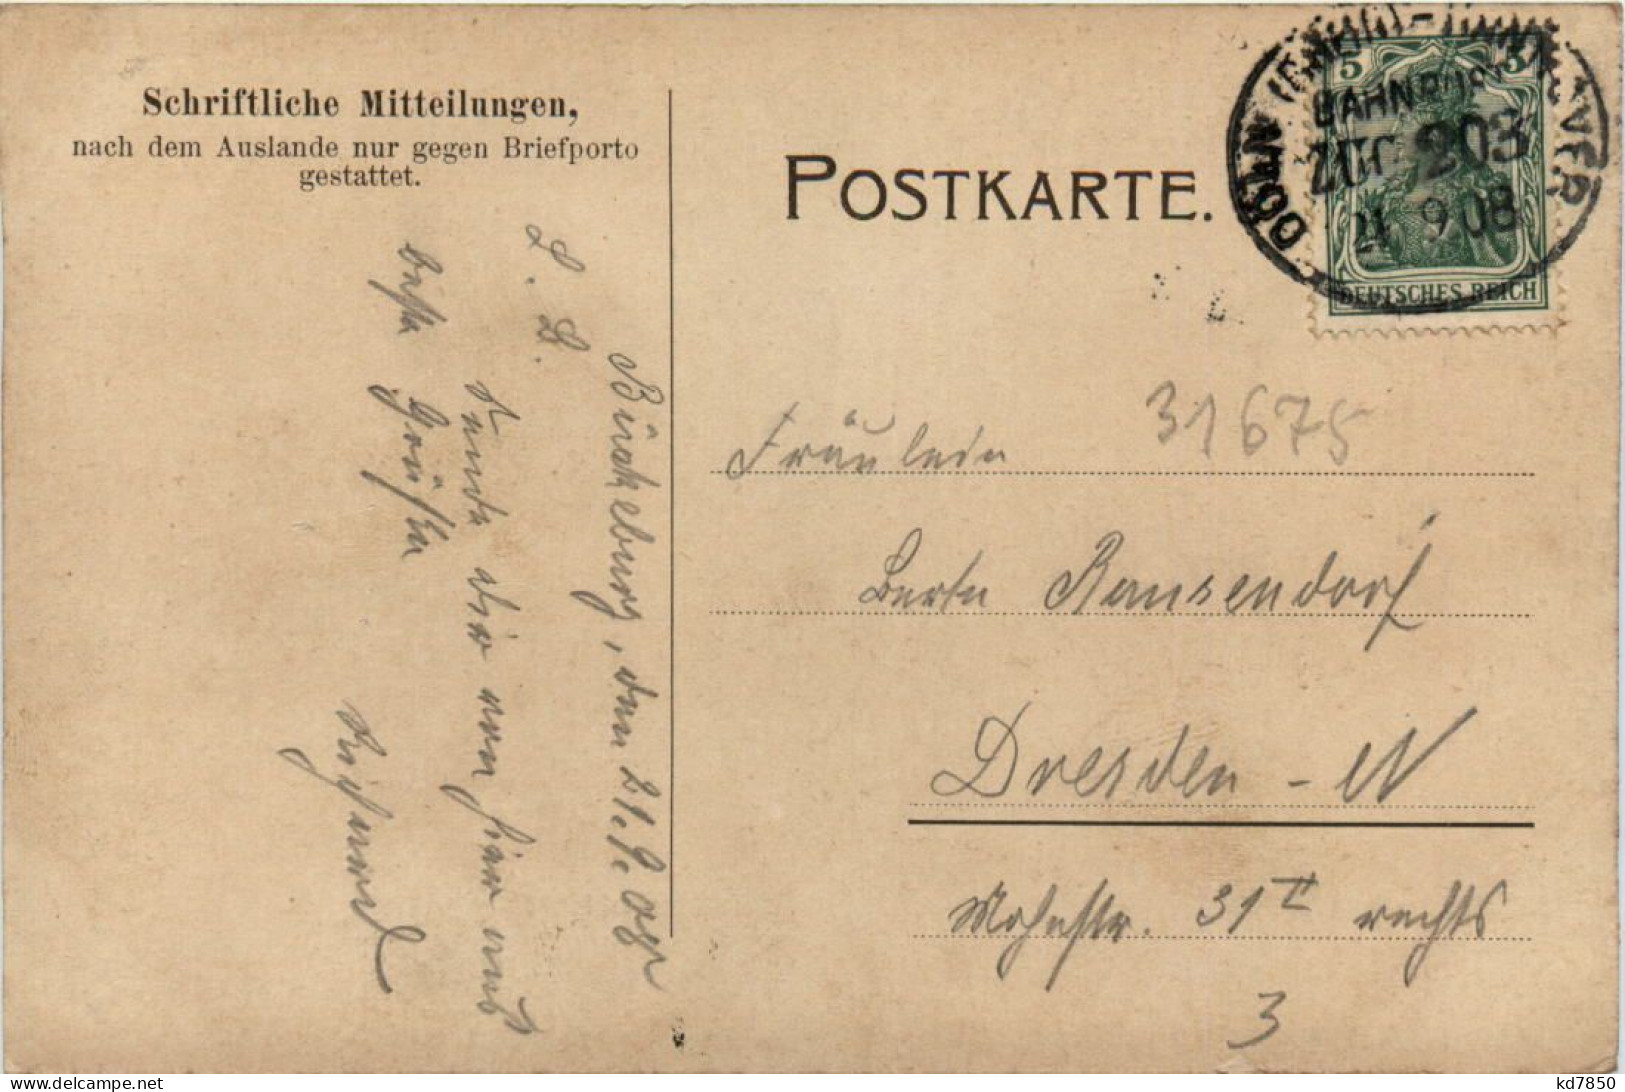 Schriftliche Mitteilungen,
nach dem Auslande nur gegen Briefporto
gestattet.
POSTKARTE.
5 5
DEUTSCHES REICH
BAHNPOST
ZUG 203
21 9 08
31675
Fräulein
Berta Ransendorf
Dresden - N
31 II rechts
3
Bückeburg, den 21.9.08
L. B.
Sende dir von hier aus
beste Grüße
Richard
kd7850